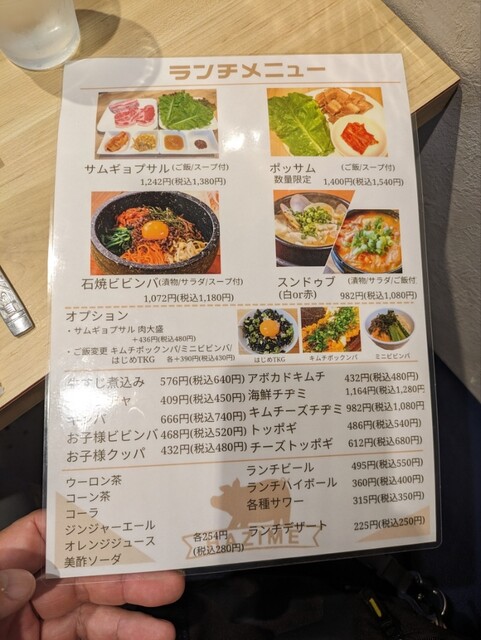 ランチメニュー
サムギョプサル(ご飯/スープ付)
1,242円(税込1,380円)
ポッサム (ご飯/スープ付)
数量限定 1,400円(税込1,540円)
石焼ビビンバ(漬物/サラダ/スープ付)
1,072円(税込1,180円)
スンドゥブ (漬物/サラダ/ご飯付
(白or赤) 982円(税込1,080円)
オプション
・サムギョプサル 肉大盛
+436円(税込480円)
・ご飯変更 キムチポックンパ/ミニビビンバ/
はじめTKG 各+390円(税込430円)
はじめTKG
キムチポックンパ
ミニビビンバ
牛すじ煮込み 576円(税込640円)
チャ 409円(税込450円)
キンパ 666円(税込740円)
お子様ビビンバ 468円(税込520円)
お子様クッパ 432円(税込480円)
アボカドキムチ 432円(税込480円)
海鮮チヂミ 1,164円(税込1,280円
キムチーズチヂミ 982円(税込1,080円
トッポギ 486円(税込540円)
チーズトッポギ 612円(税込680円)
ウーロン茶
コーン茶
コーラ
ジンジャーエール
オレンジジュース
美酢ソーダ
各254円
(税込280円)
ランチビール 495円(税込550円)
ランチハイボール 360円(税込400円)
各種サワー 315円(税込350円)
ランチデザート 225円(税込250円)
HAZIME